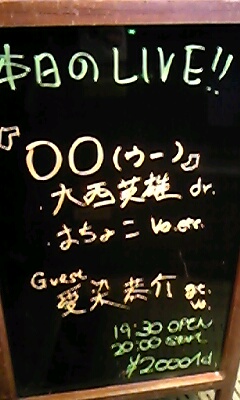 本日のLIVE!!
『〇〇(ウー)』
大西英雄 dr.
はちょこ Vo. etc.
Guest
愛染恭介 gt. vo.
19:30 OPEN
20:00 START
¥2000 1d.